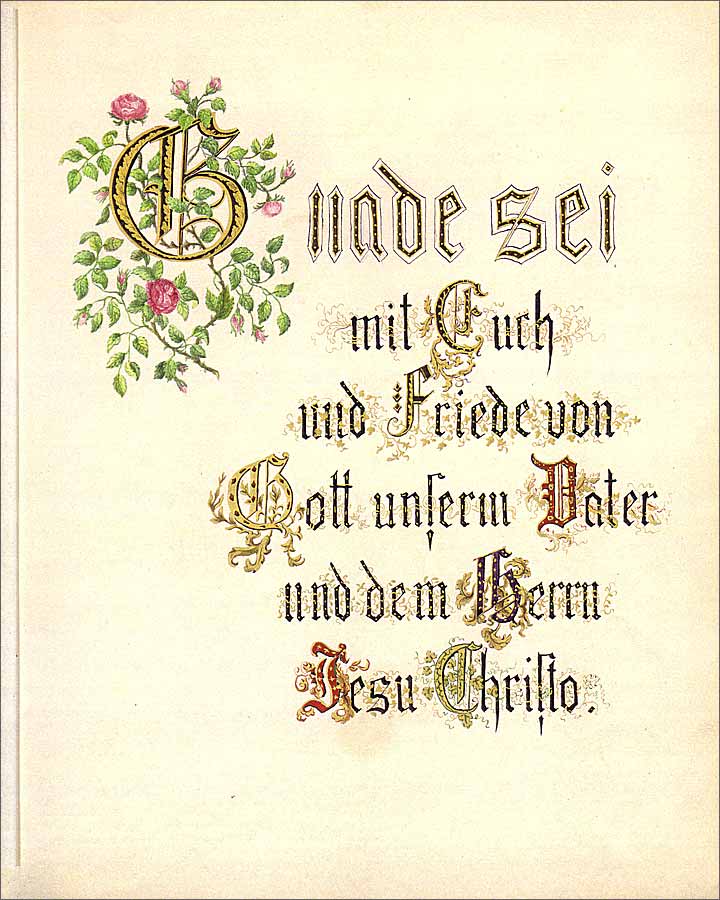 Gnade sei
mit Euch
und Friede von
Gott unſerm Vater
und dem Herrn
Jesu Chriſto.